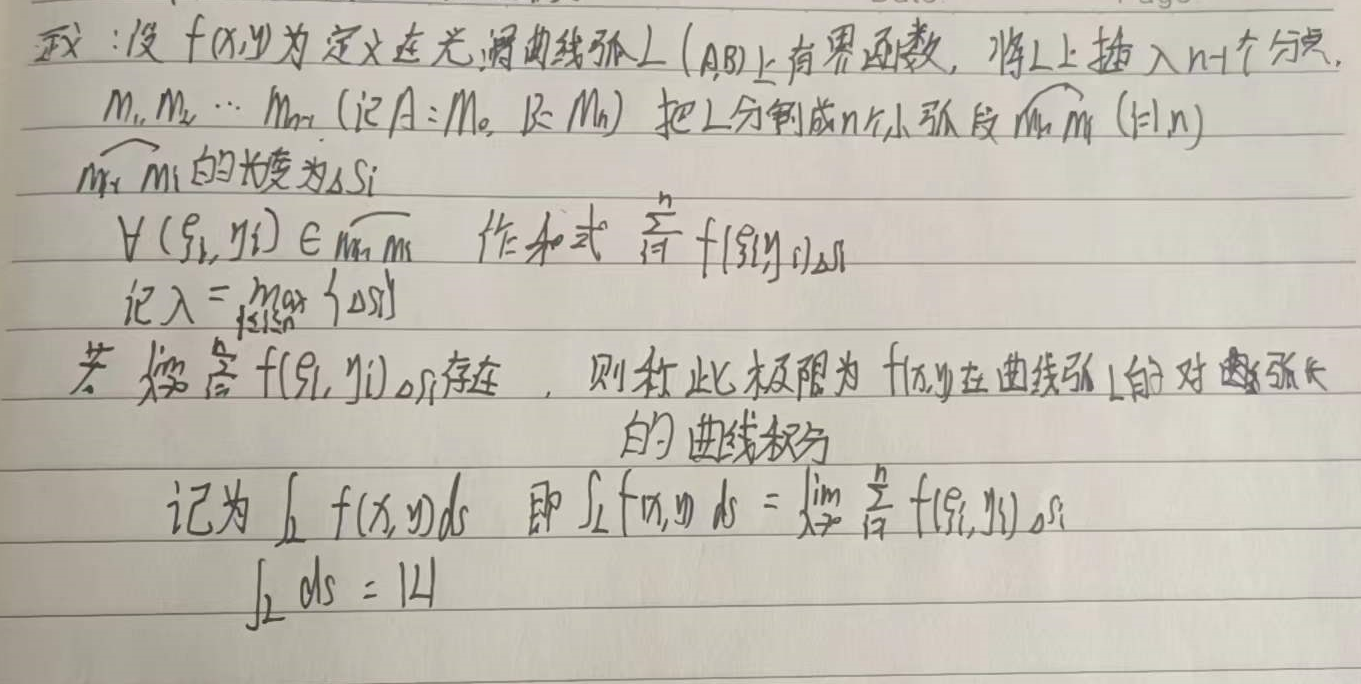 定义：设 f(x,y)为定义在光滑曲线弧L (A,B)上有界函数，将L上插入n-1个分点.
M₁, M₂ … Mₙ₋₁ (记A=M₀, B=Mₙ) 把L分割成n个小弧段 Mᵢ₋₁Mᵢ (i=1,n)
Mᵢ₋₁Mᵢ 的长度为ΔSi
∀(ξi, ηi) ∈ Mᵢ₋₁Mᵢ 作和式 ∑ⁿᵢ₌₁ f(ξi,ηi)ΔSi
记 λ = max 1≤i≤n {ΔSi}
若 lim λ→0 ∑ⁿᵢ₌₁ f(ξi, ηi)ΔSi存在，则称此极限为 f(x,y)在曲线弧L的对弧长
的曲线积分
记为 ∫L f(x,y)ds 即 ∫L f(x,y) ds = lim λ→0 ∑ⁿᵢ₌₁ f(ξi, ηi)ΔSi
∫L ds = |L|